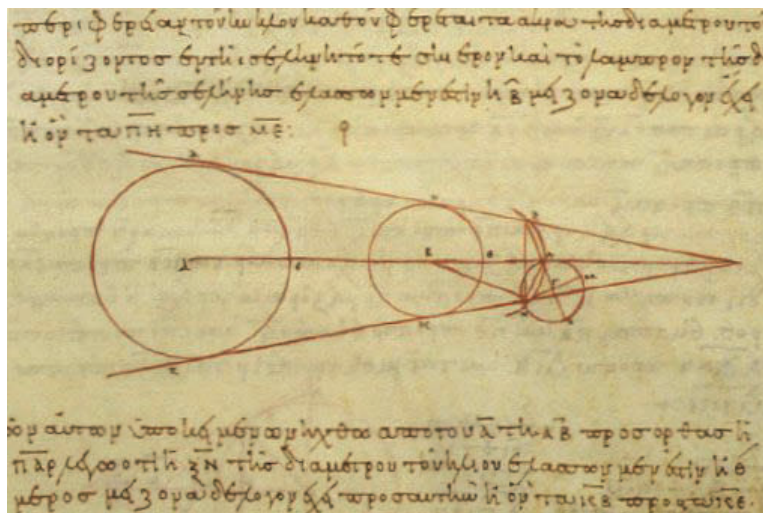 περιφέρειαν τὸν κύκλον καθ' ὃν φέρεται τὰ ἄκρα τῆς διαμέτρου τοῦ
διορίζοντος ἐν τῆι σελήνηι τό τε σκιερὸν καὶ τὸ λαμπρὸν τῆς δι
αμέτρου τῆς σελήνης ἐλάσσων μέν ἐστιν ἢ β̅ μείζονα δὲ λόγον ἔχει
ἢ ὃν τὰ π̅η̅ πρὸς μ̅ε̅:
αὐτῶν ὑποκειμένων ἤχθω ἀπὸ τοῦ Α̅ τῆι Α̅Β̅ πρὸς ὀρθὰς ἡ
Π̅Α̅Ρ̅ λέγω ὅτι ἡ Ξ̅Ν̅ τῆς διαμέτρου τοῦ ἡλίου ἐλάσσων μέν ἐστιν ἢ θ
μέρος μείζονα δὲ λόγον ἔχει πρὸς αὐτὴν ἢ ὃν τὰ κ̅β̅ πρὸς